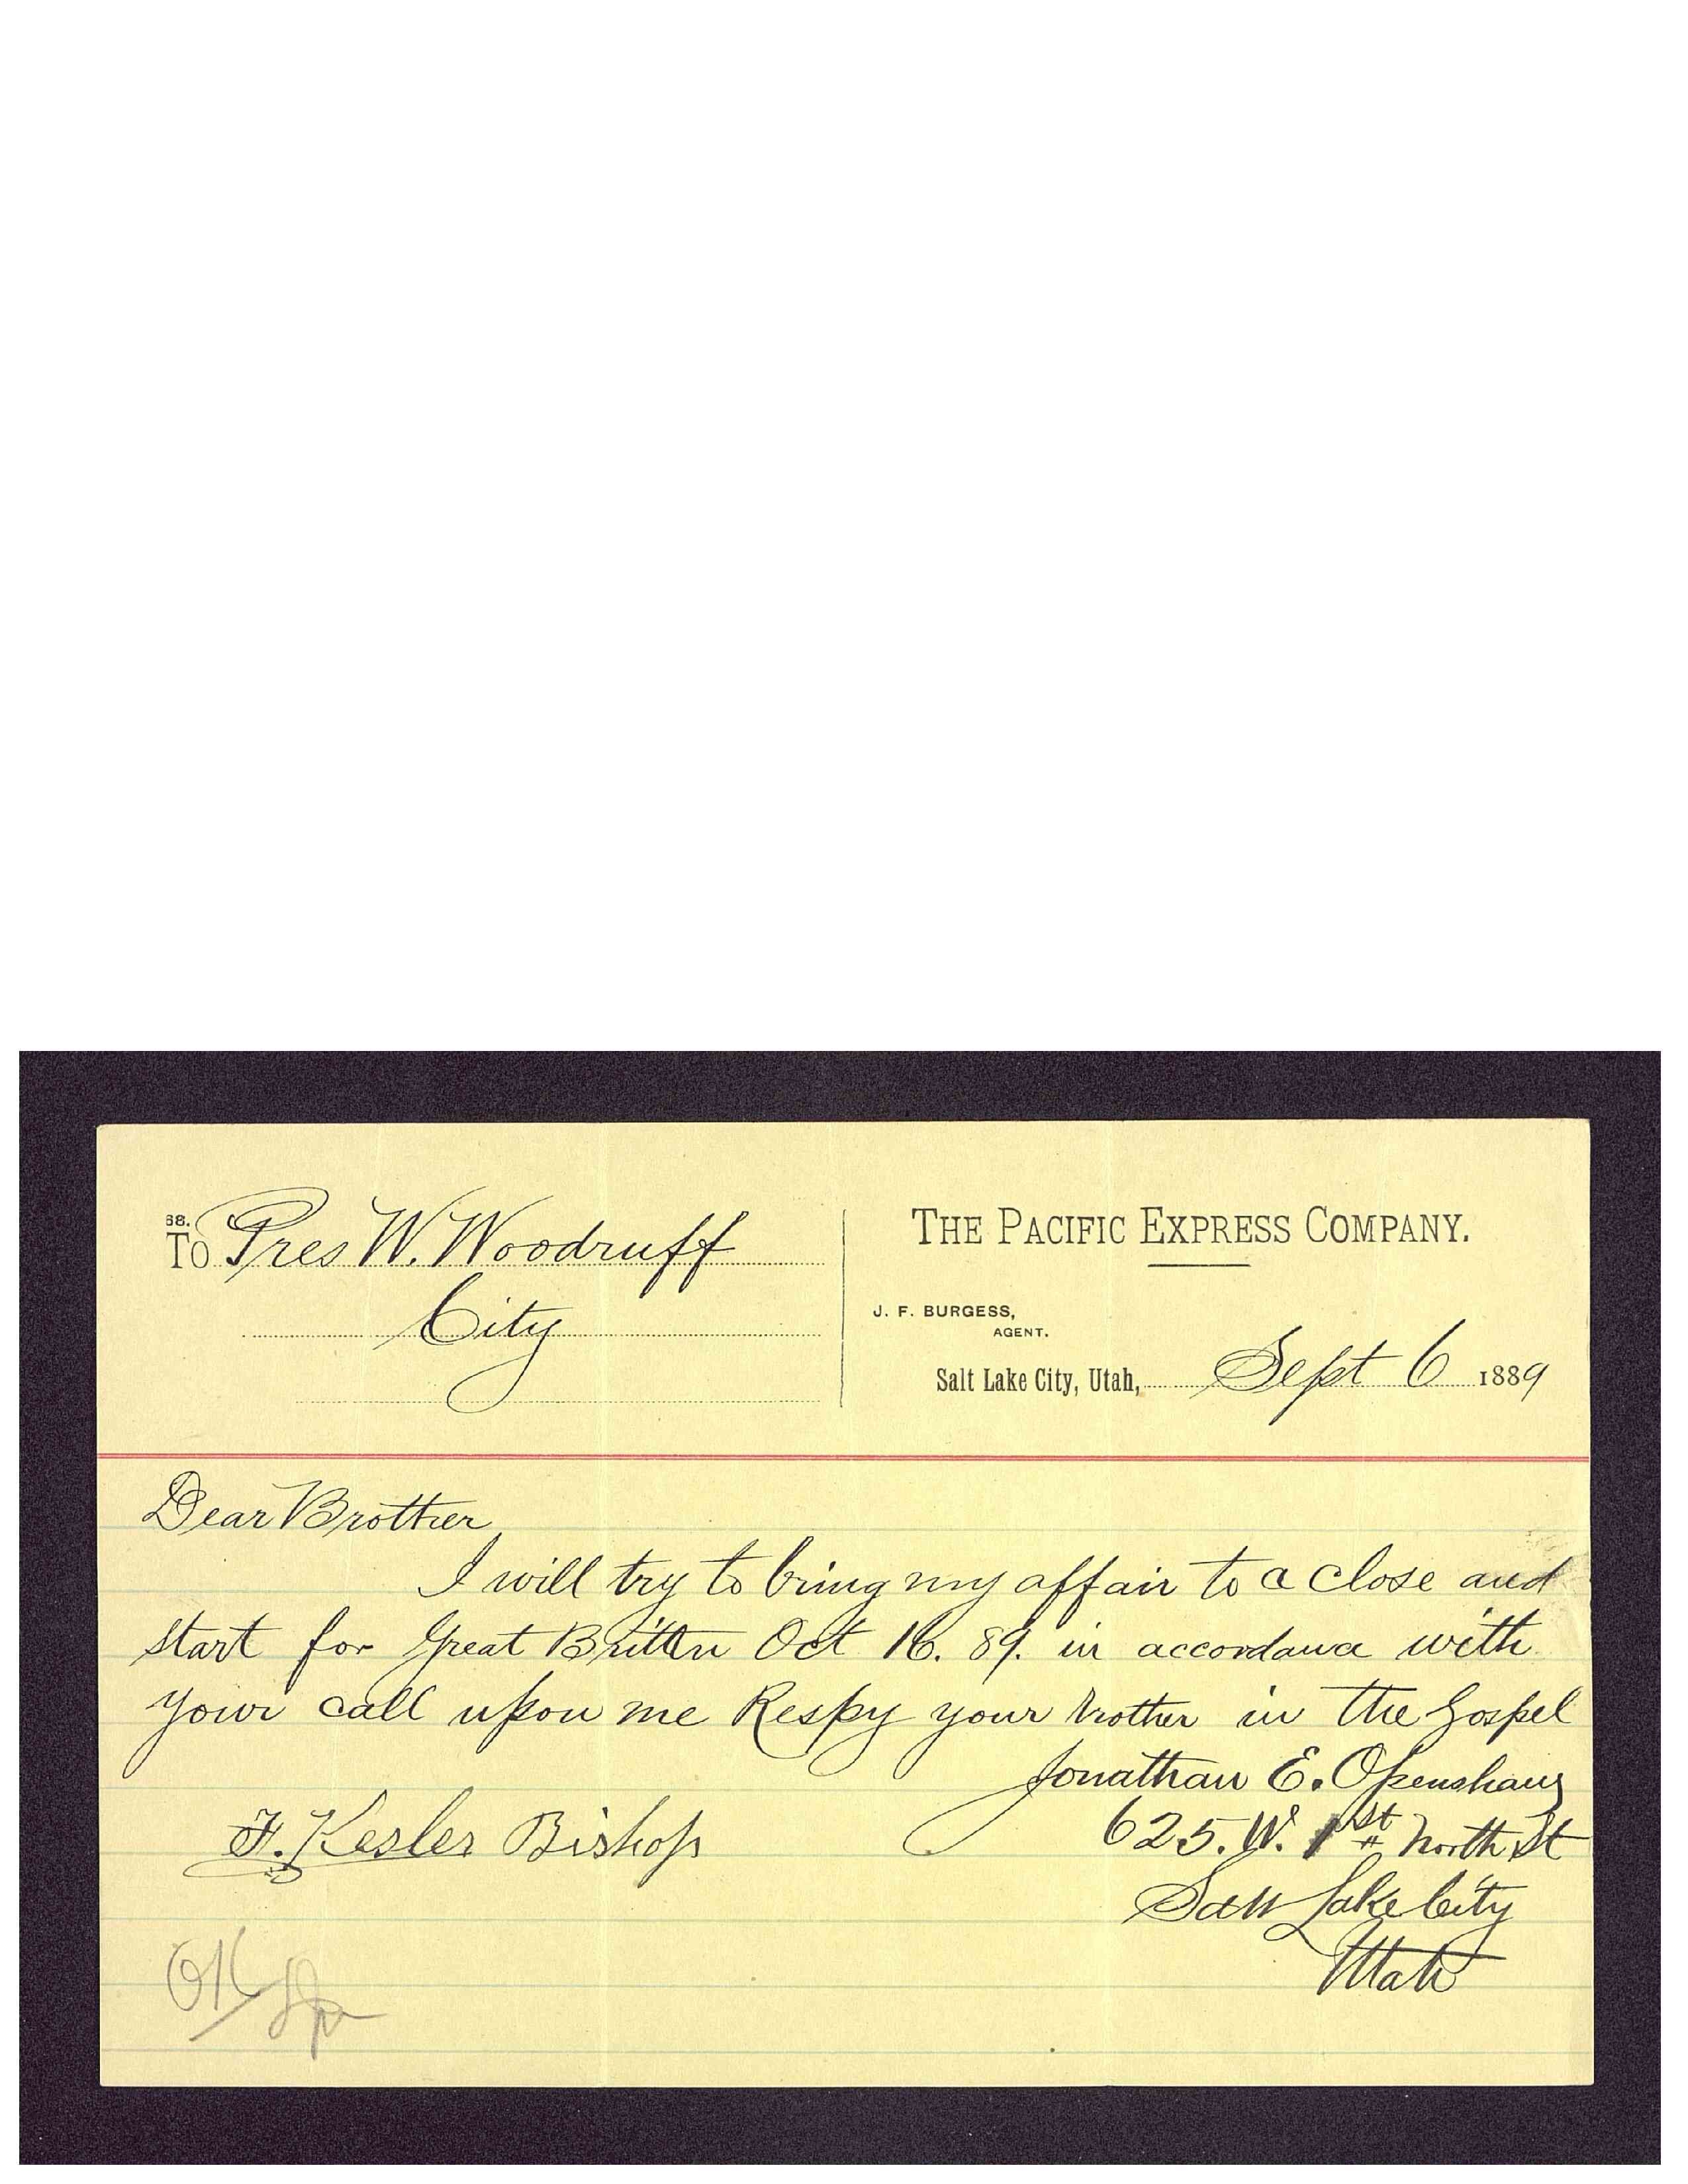 88.
To Pres W. Woodruff
City
THE PACIFIC EXPRESS COMPANY.
J. F. BURGESS,
AGENT.
Salt Lake City, Utah, Sept 6 1889
Dear Brother
I will try to bring my affair to a close and
start for Great Britten Oct 16. 89. in accordance with
your call upon me Respy your brother in the Gospel
Jonathan E. Openshaw
625. W. 1st North St
Salt Lake City
Utah
F. Kesler Bishop
OK